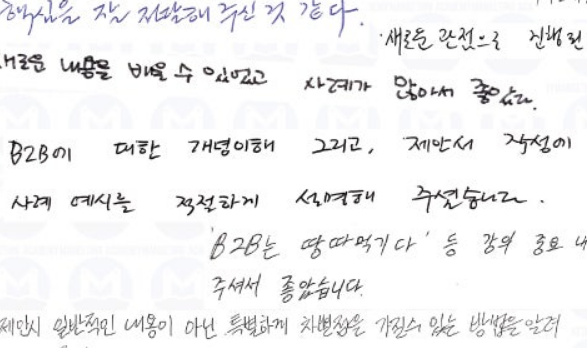 핵심을 잘 전달해 주신 것 같다.
새로운 관점으로 진행된
새로운 내용을 배울 수 있었고 사례가 많아서 좋았다.
B2B에 대한 개념이해 그리고, 제안서 작성에
사례 예시를 적절하게 설명해 주셨습니다.
'B2B는 땅따먹기다' 등 강의 중요 내
주셔서 좋았습니다.
제안시 일반적인 내용이 아닌 특별하게 차별점을 가질수 있는 방법을 알려